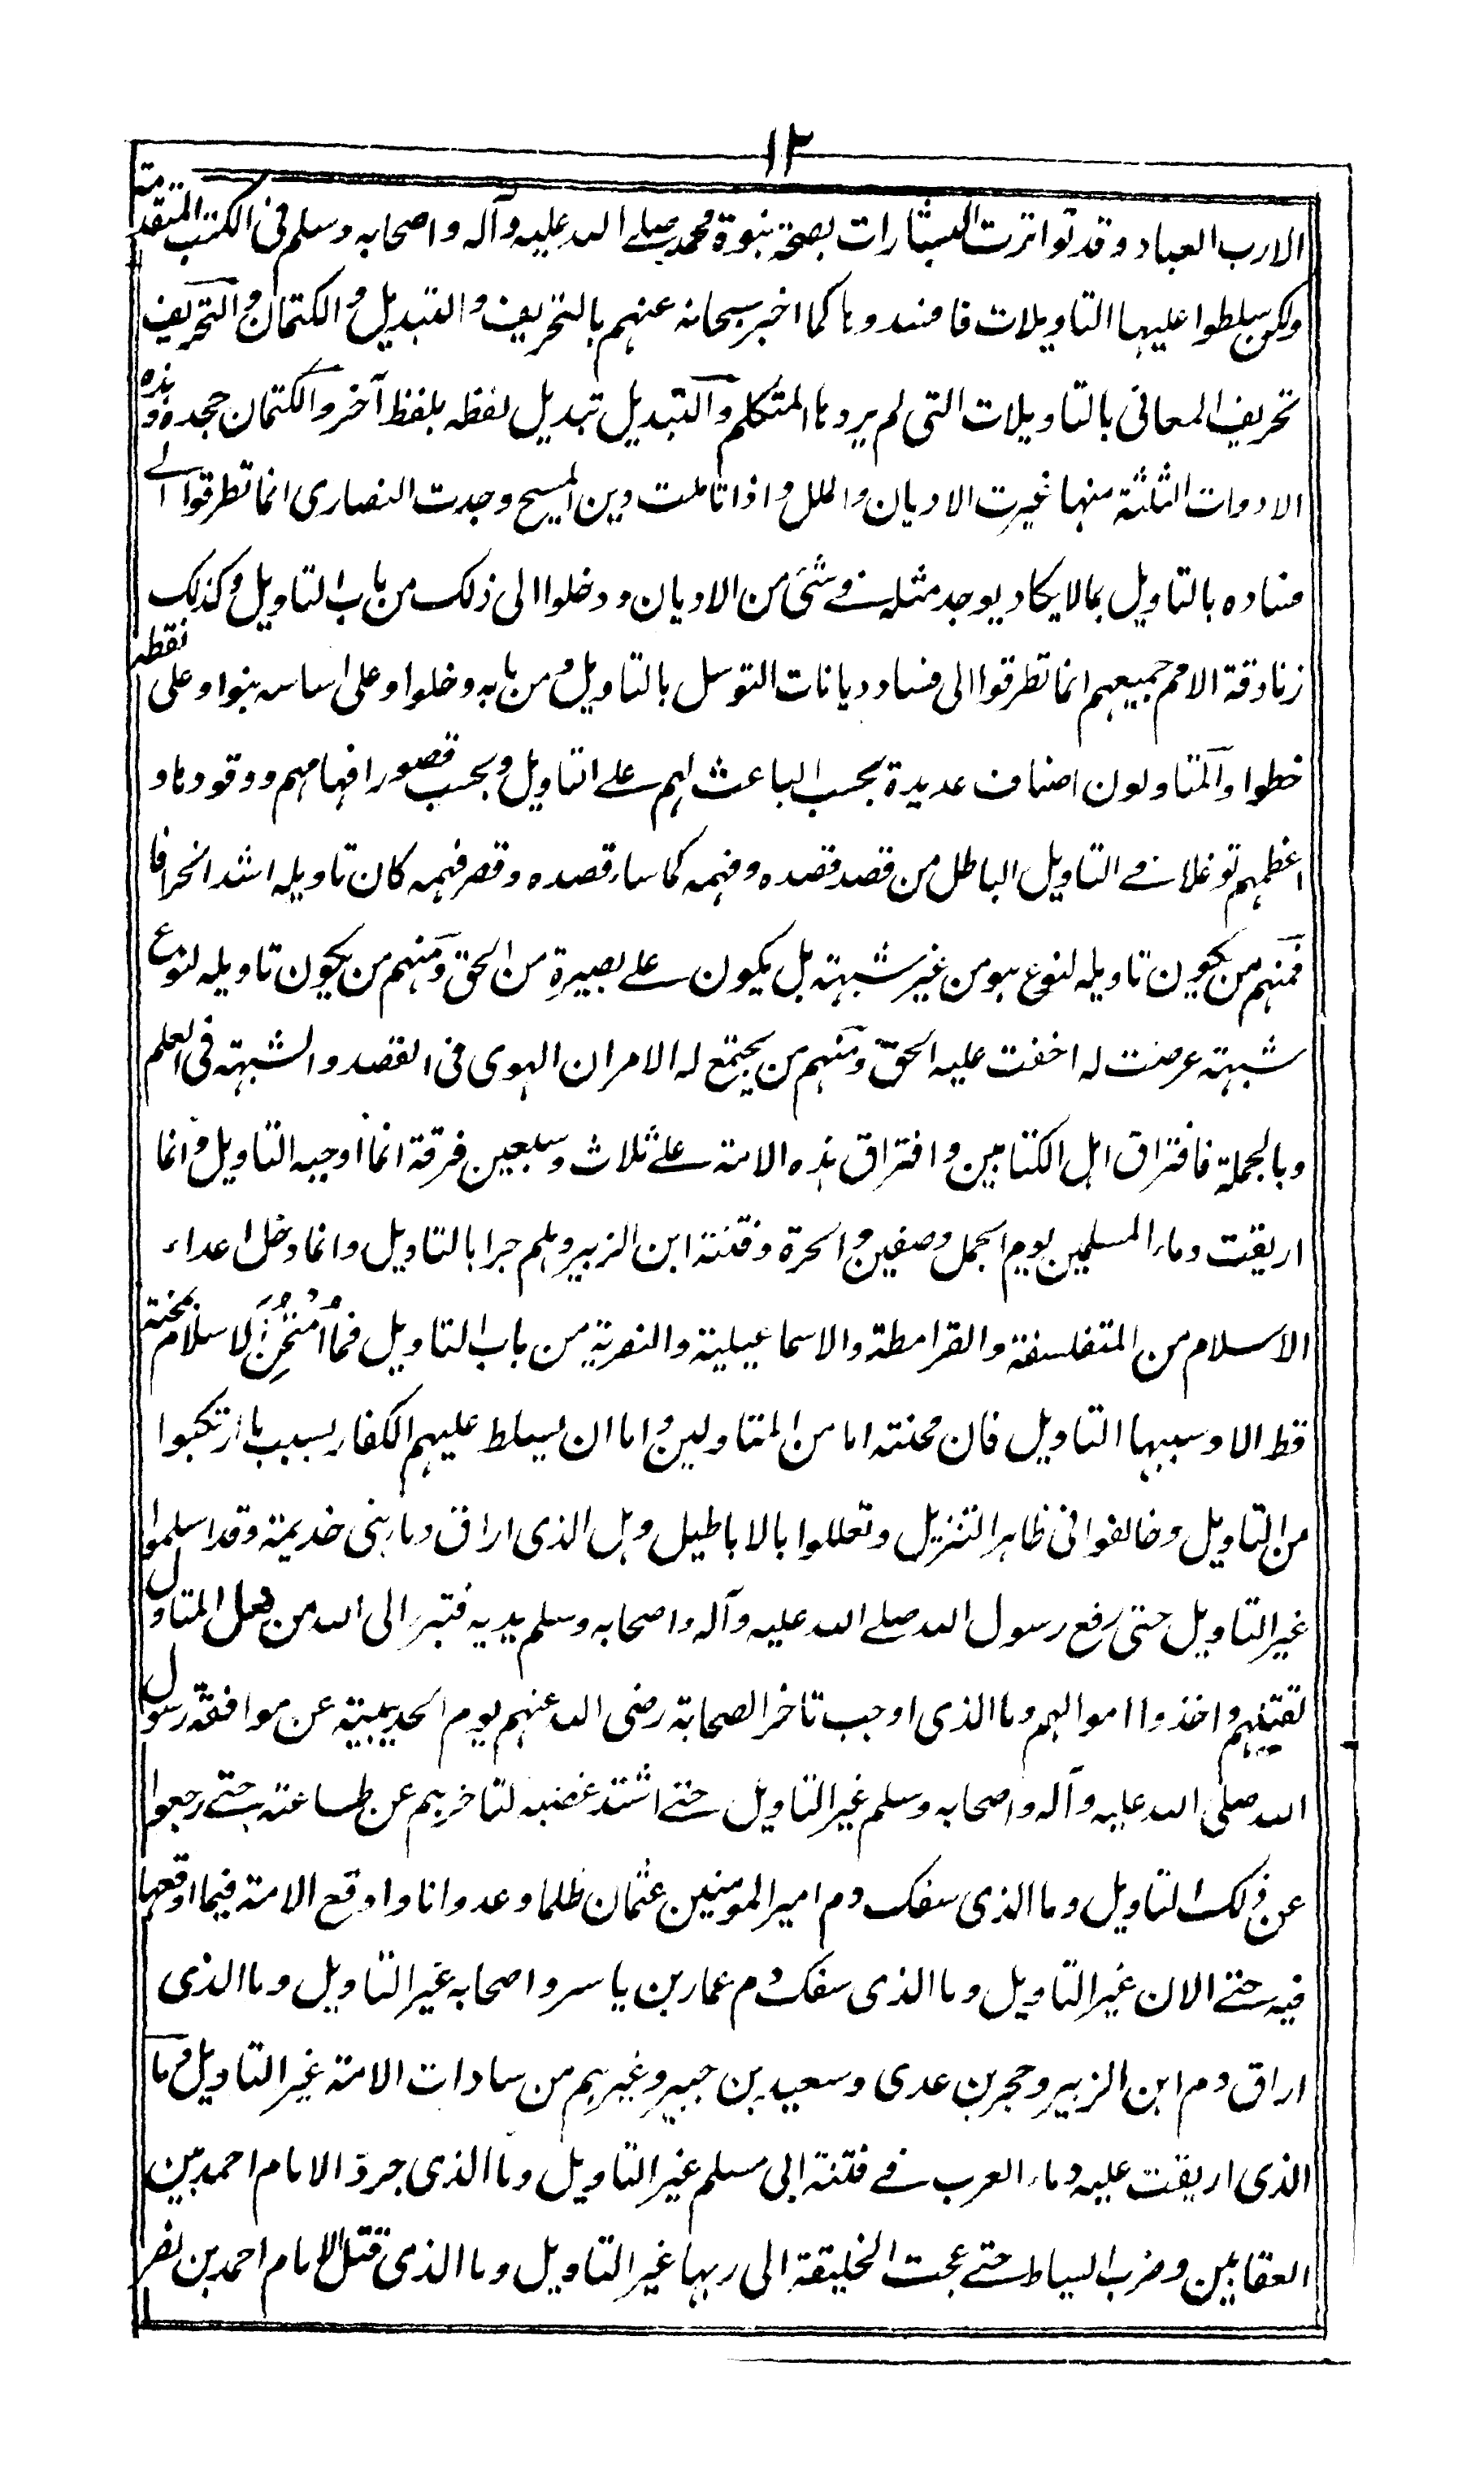 ١٢
الا رب العباد وقد تواترت البشارات بصحة نبوة محمد صلے الله عليه وآله واصحابه وسلم فى الكتب المتقدمة
ولكن سلطوا عليها التاويلات فافسدوها كما اخبر سبحانه عنهم بالتحريف والتبديل والكتمان والتحريف
تحريف المعانى بالتاويلات التى لم يردها المتكلم والتبديل تبديل لفظه بلفظ آخر والكتمان جحده وهذه
الادوات الثلثة منها غيرت الاديان والملل واذا تاملت دين المسيح وجدت النصارى انما تطرقوا الے
فساده بالتاويل بما لا يكاد يوجد مثله فے شئ من الاديان ودخلوا الى ذلك من باب التاويل وكذلك
زنادقة الامم جميعهم انما تطرقوا الى فساد ديانات التوسل بالتاويل ومن بابه دخلوا وعلى اساسه بنوا وعلى نقطه
خطوا والمتاولون اصناف عديدة بحسب الباعث لهم علے التاويل وبحسب قصور افهامهم ووقودها و
اعظمهم توغلا فے التاويل الباطل من قصد قصده وفهمه كما ساء قصده وقصر فهمه كان تاويله اشد انحرافا
فمنهم من يكون تاويله لنوع هو من غير شبهة بل يكون علے بصيرة من الحق ومنهم من يكون تاويله لنوع
شبهة عرضت له اخفت عليه الحق ومنهم من يجتمع له الامران الهوى فى القصد والشبهة فى العلم
وبالجملة فافتراق اهل الكتابين وافتراق هذه الامة علے ثلاث وسبعين فرقة انما اوجبه التاويل وانما
اريقت دماء المسلمين يوم الجمل وصفين والحرة وفتنة ابن الزبير وهلم جرا بالتاويل وانما دخل اعداء
الاسلام من المتفلسفة والقرامطة والاسماعيلية والنصرية من باب التاويل فما اُمْتُحِنَ الاسلام بمحنة
قط الا وسببها التاويل فان محنته اما من المتاولين واما ان يسلط عليهم الكفار بسبب ما ارتكبوا
من التاويل وخالفوا فى ظاهر التنزيل وتعللوا بالاباطيل وهل الذى اراق دماء بنى خديمة وقد اسلموا
غير التاويل حتى رفع رسول الله صلے الله عليه وآله واصحابه وسلم يديه فتبرء الى الله من فعل المتاول
لقتلهم واخذوا اموالهم وما الذى اوجب تاخر الصحابة رضى الله عنهم يوم الحديبية عن موافقة رسول
الله صلى الله عليه وآله واصحابه وسلم غير التاويل حتے اشتد غضبه لتاخرهم عن طاعته حتے رجعوا
عن ذلك التاويل وما الذى سفك دم امير المومنين عثمان ظلما وعدوانا واوقع الامة فيما اوقعها
فيه حتے الان غير التاويل وما الذى سفك دم عمار بن ياسر واصحابه غير التاويل وما الذى
اراق دم ابن الزبير وحجر بن عدى وسعيد بن جبير وغيرهم من سادات الامة غير التاويل وما
الذى اريقت عليه دماء العرب فے فتنة ابى مسلم غير التاويل وما الذى جرد الامام احمد بين
العقابين وضرب السياط حتے عجت الخليقة الى ربها غير التاويل وما الذى قتل الامام احمد بن نصر